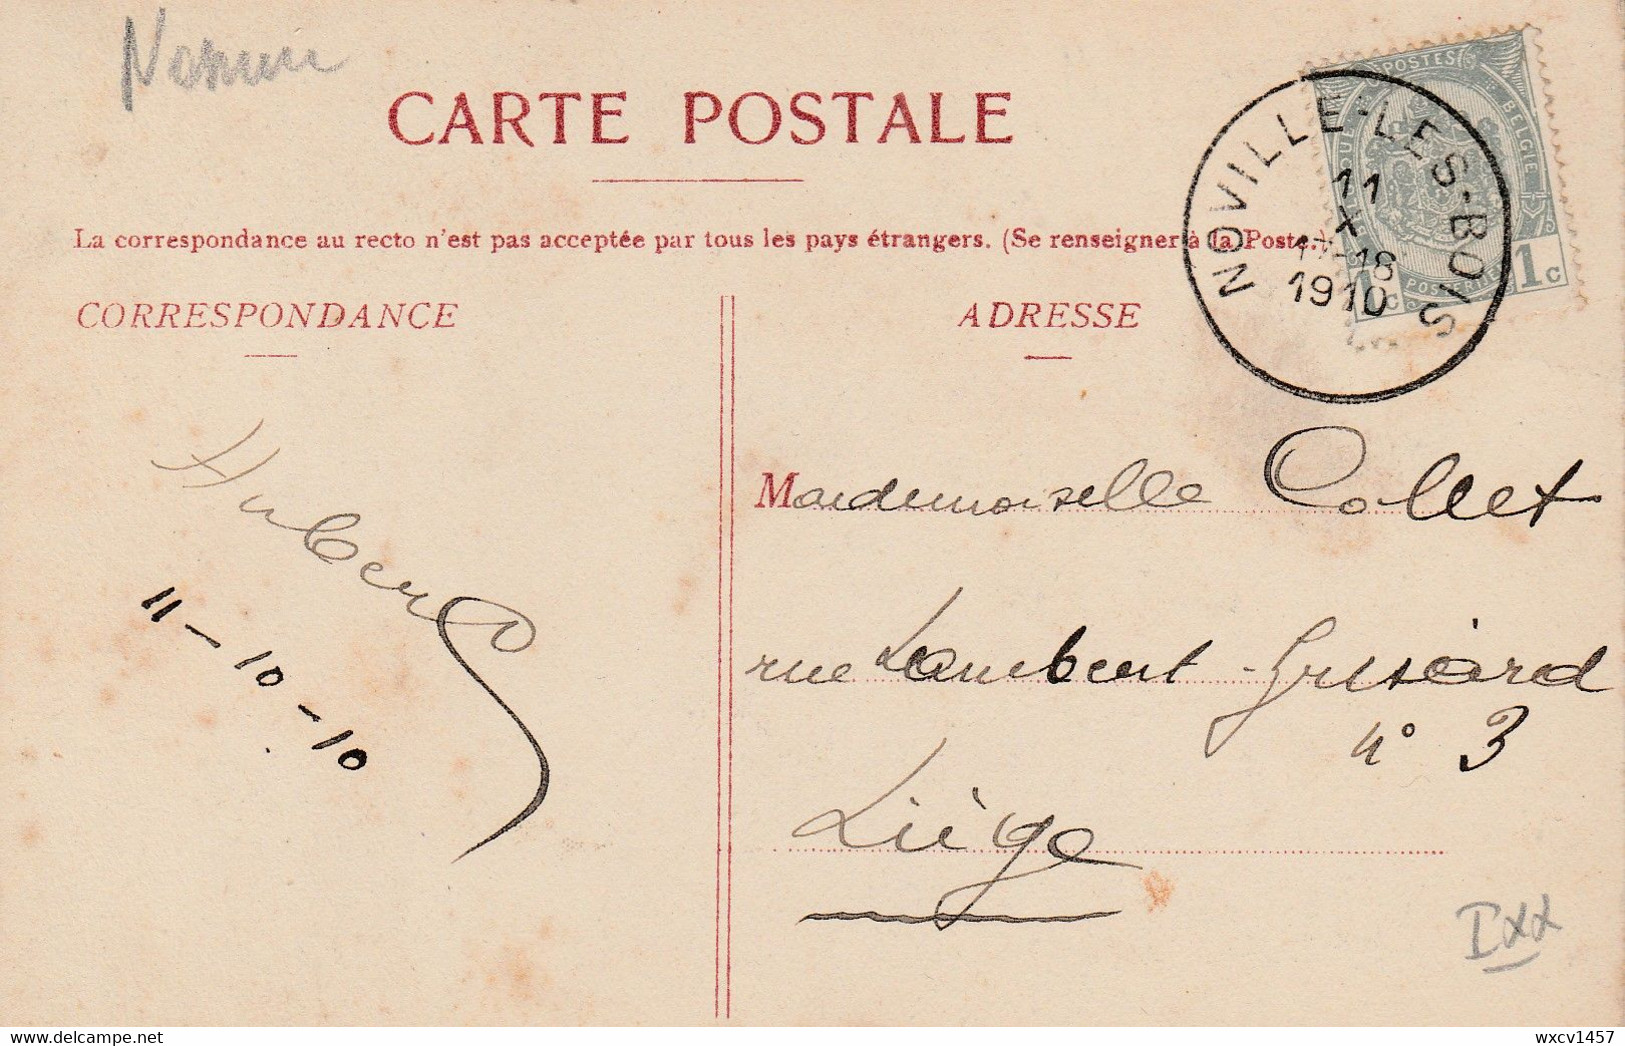 Namur
CARTE POSTALE
La correspondance au recto n'est pas acceptée par tous les pays étrangers. (Se renseigner à la Poste.)
POSTES BELGIE
1c 1c
NOVILLE-LES-BOIS
11
X
17-18
1910
CORRESPONDANCE
ADRESSE
Hubert
11-10-10
Mademoiselle Collet
rue Lambert Grisard
n° 3
Liège
Ixx
www.delcampe.net
wxcv1457